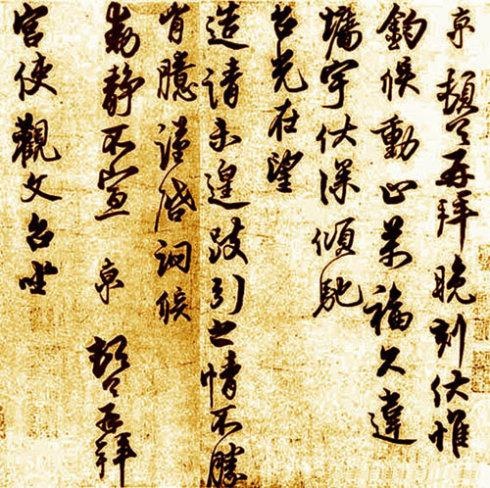 京 頓首再拜晚刻伏惟
鈞候動止萬福久違
牆宇伏深傾馳
台光在望
造請未遑跂引之情不勝
胷臆謹啓詗候
動靜不宣 京 頓首再拜
宮使觀文台坐